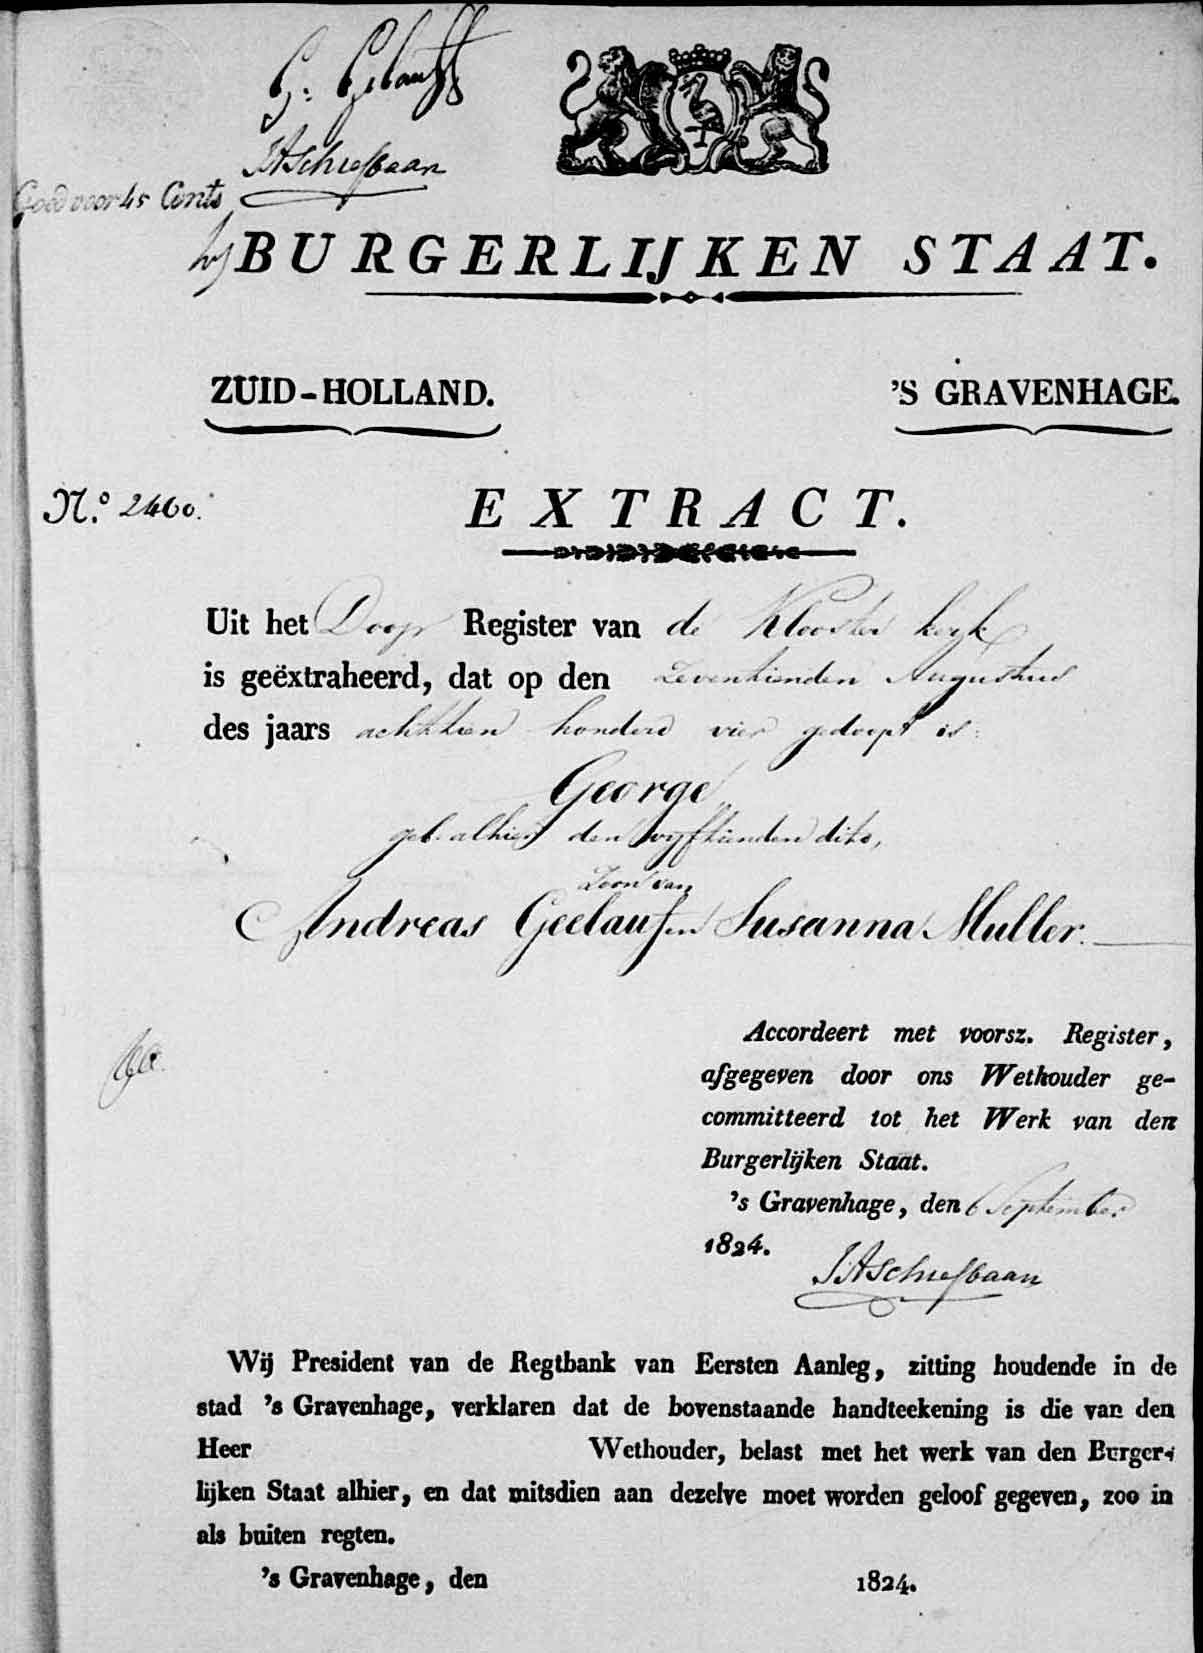 G: Gelauff
JASchiefbaan
Goed voor 45 Cents
BURGERLIJKEN STAAT.
ZUID-HOLLAND. 'S GRAVENHAGE.
N.º 2460.
EXTRACT.
Uit het Doop Register van de Klooster kerk
is geëxtraheerd, dat op den Zeventienden Augustus
des jaars achttien honderd vier gedoopt is:
George,
geb. alhier den vyftienden dito,
Zoon van
Andreas Geelauf en Susanna Muller.
Accordeert met voorsz. Register,
afgegeven door ons Wethouder ge-
committeerd tot het Werk van den
Burgerlijken Staat.
's Gravenhage, den 6 September
1824.
JASchiefbaan
Wij President van de Regtbank van Eersten Aanleg, zitting houdende in de
stad 's Gravenhage, verklaren dat de bovenstaande handteekening is die van den
Heer Wethouder, belast met het werk van den Burger-
lijken Staat alhier, en dat mitsdien aan dezelve moet worden geloof gegeven, zoo in
als buiten regten.
's Gravenhage, den 1824.